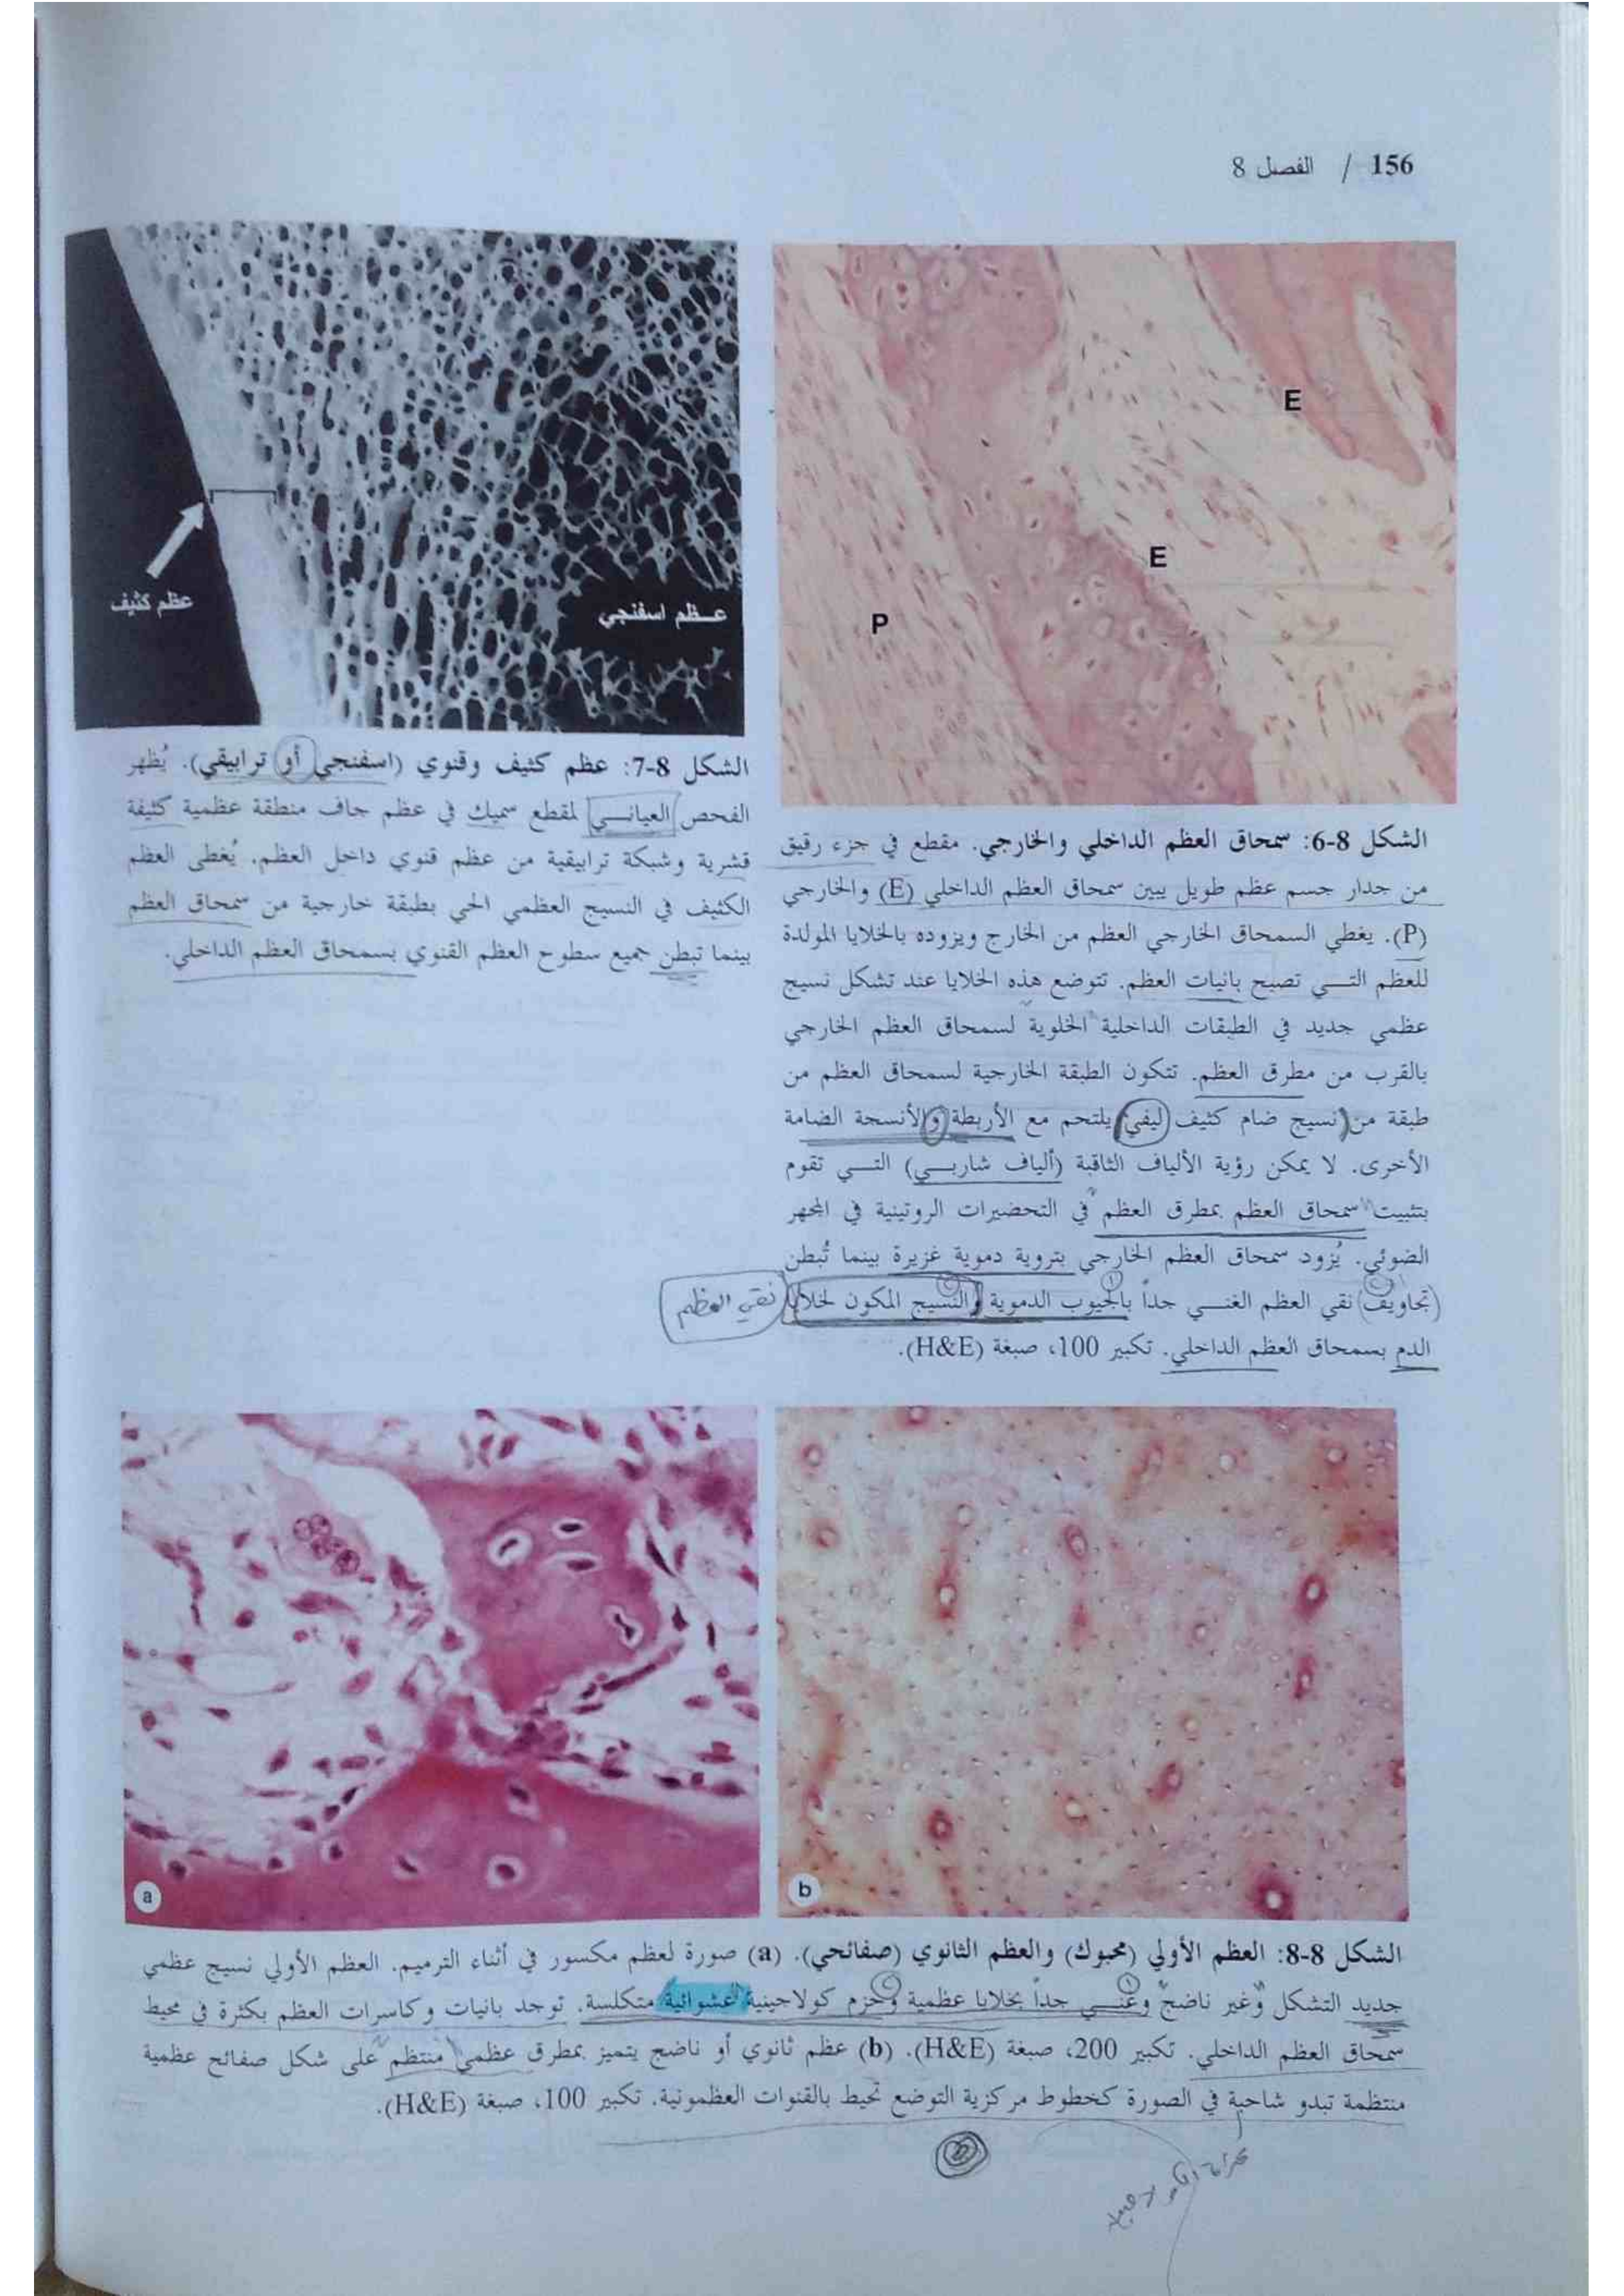 156 / الفصل 8
E
E
P
الشكل 8-6: سمحاق العظم الداخلي والخارجي. مقطع في جزء رقيق
من جدار جسم عظم طويل يبين سمحاق العظم الداخلي (E) والخارجي
(P). يغطي السمحاق الخارجي العظم من الخارج ويزوده بالخلايا المولدة
للعظم التي تصبح بانيات العظم. تتوضع هذه الخلايا عند تشكل نسيج
عظمي جديد في الطبقات الداخلية الخلوية لسمحاق العظم الخارجي
بالقرب من مطرق العظم. تتكون الطبقة الخارجية لسمحاق العظم من
طبقة من نسيج ضام كثيف ليفي يلتحم مع الأربطة والأنسجة الضامة
الأخرى. لا يمكن رؤية الألياف الثاقبة (ألياف شاربي) التي تقوم
بتثبيت سمحاق العظم بمطرق العظم في التحضيرات الروتينية في المجهر
الضوئي. يُزود سمحاق العظم الخارجي بتروية دموية غزيرة بينما تُبطن
تجاويف نقي العظم الغني جداً بالجيوب الدموية والنسيج المكون لخلايا
نقي العظم
الدم بسمحاق العظم الداخلي. تكبير 100، صبغة (H&E).
عظم كثيف
عظم اسفنجي
الشكل 8-7: عظم كثيف وقنوي (اسفنجي أو ترابيقي). يُظهر
الفحص العياني لمقطع سميك في عظم جاف منطقة عظمية كثيفة
قشرية وشبكة ترابيقية من عظم قنوي داخل العظم. يُغطى العظم
الكثيف في النسيج العظمي الحي بطبقة خارجية من سمحاق العظم
بينما تبطن جميع سطوح العظم القنوي بسمحاق العظم الداخلي.
a
b
الشكل 8-8: العظم الأولي (محبوك) والعظم الثانوي (صفائحي). (a) صورة لعظم مكسور في أثناء الترميم. العظم الأولي نسيج عظمي
جديد التشكل وغير ناضج وغني جداً بخلايا عظمية وحزم كولاجينية عشوائية متكلسة. توجد بانيات وكاسرات العظم بكثرة في محيط
سمحاق العظم الداخلي. تكبير 200، صبغة (H&E). (b) عظم ثانوي أو ناضج يتميز بمطرق عظمي منتظم على شكل صفائح عظمية
منتظمة تبدو شاحبة في الصورة كخطوط مركزية التوضع تحيط بالقنوات العظمونية. تكبير 100، صبغة (H&E).